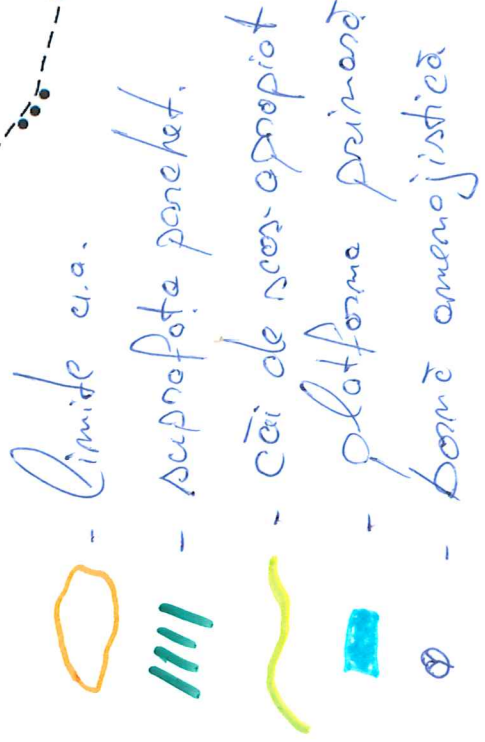 - limite u.a.
- suprafața parchet.
- căi de scos-apropiat
- platforma primară
- bornă amenajistică